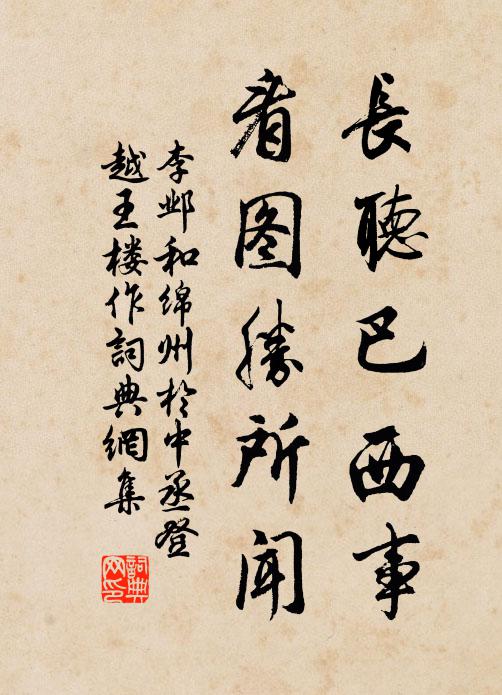 長聽巴西事
看图勝所聞
李邺和绵州於中丞登
越王楼作詞典網集
詞典
网印